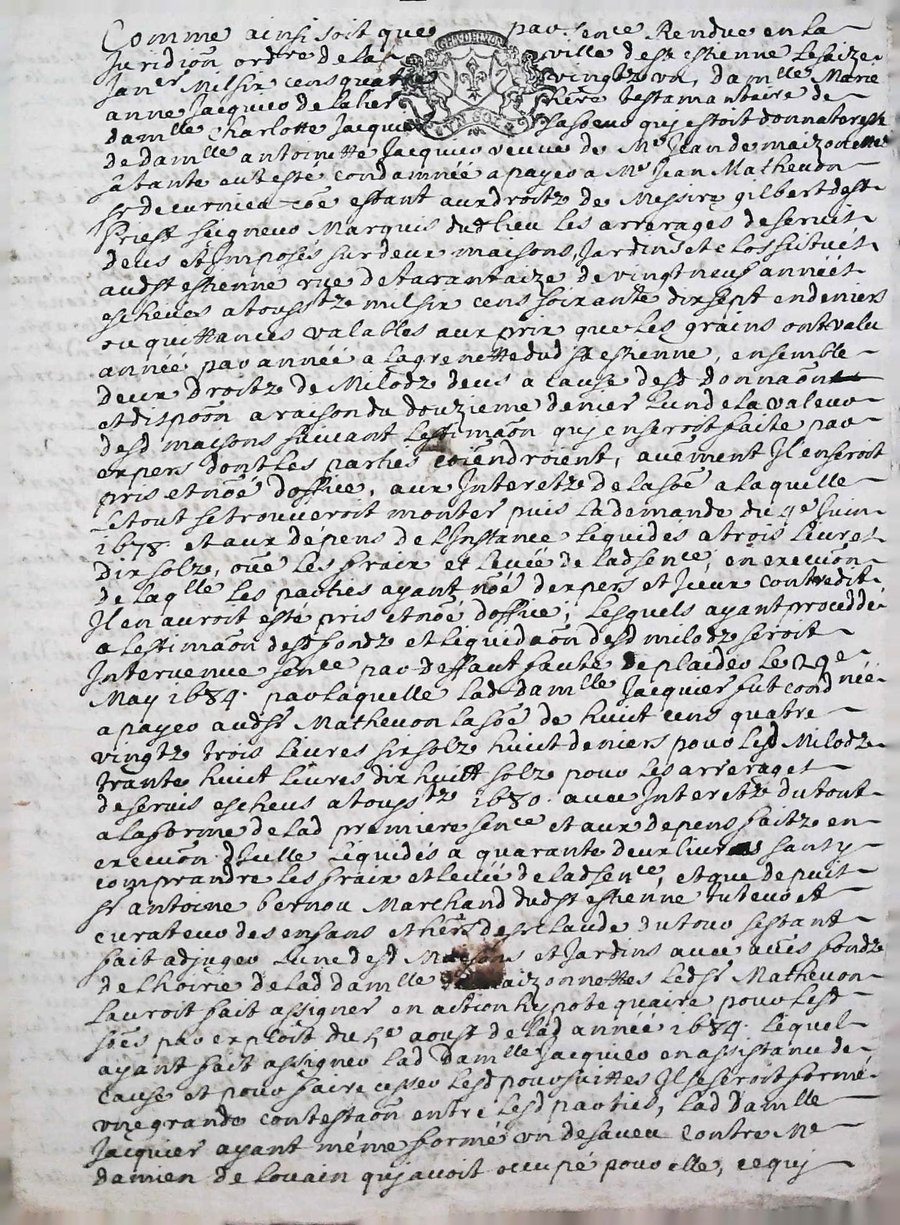 Comme ainsi soit que par senᶜᵉ Rendue en la
Juridion̄ ordʳᵉ de la ville de st estienne le saize
Janᵉʳ mil six cens quatre vingtz un, damˡˡᵉ Marie
anne Jacquier delaher here testamantaire de
damˡˡᵉ Charlotte Jacquier sa soeur quj estoit donnataresse
de damˡˡᵉ antoinette Jacquier veuve de Mᵉ Jean de maizonettes
sa tante eut esté condamnée a payer a Mᵉ Jean Matheuon
sʳ de estant aux droitz de Messire gilbert de st
Priest seigneur Marquis dud lieu les arrerages de seruit
delis et Imposés sur deux maisons, Jardins et clos situét
aud st estienne rue de tarantaize de vingt neuf annéet
escheues a toussᵗᶻ mil six cens soixante dix sept en deniers
ou quittances valables aux prix que les grains ont valu
année par année a la grenette dud st estienne, ensemble
deux droitz de Milodz deus a cause desd donnaōn
et dispoōn a raison du douzieme denier lun de la valeur
desd maisons suiuant lestimaōn quj en seroit faite par
expers dont les parties coiendroient, autement Il en seroit
pris et noé doffice, aux Interetz de la soē a laquelle
le tout se trouueroit monter puis la demande du 4ᵉ Juin
1678 et aux dépens de Linstance Liquidés a trois Liures
dix solz, oūe les fraix et leuée de ladsenᶜᵉ, en execuōn
de laqˡˡᵉ les parties ayant noé dexpers et Jceux contredit
Il en auroit esté pris et noé doffice, Lesquels ayant proceddé
a lestimaōn desd fondz et liquidaōn desd milodz seroit
Interuenue senᶜᵉ par deffaut faute de plaider le 29ᵉ
May 1684 par laquelle lad damˡˡᵉ Jacquier fut condⁿᵉᵉ
a payer aud sʳ Matheuon la soē de huit cens quatre
vingtz trois liures six solz huit deniers pour lesd Milodz
trante huit liures dix huit solz pour les arreraget
de seruis escheus a toussᵗᶻ 1680 auec Interetz du tout
a la forme de lad premiere senᶜᵉ et aux dépens faitz en
execuōn dicelle liquidés a quarante deux liures sans y
comprandre les fraix et leuée de ladsenᶜᵉ, et que depuit
sʳ antoine bernou Marchand dud st estienne tuteur et
curateur des enfans et hērs de sʳ claude dutour sestant
fait adjuger lune desd Maisons et Jardins auec fondz
de Lhoirie de lad damˡˡᵉ de maizonnettes led sʳ Matheuon
Lauroit fait assigner en action hypotequaire pour lesd
soēs par exploit du 5ᵉ aoust de lad année 1684 lequel
ayant fait assigner lad damˡˡᵉ Jacquier en assistance de
cause et pour faire cesser lesd poursuittes Il se seroit formé
vne grande contestaōn entre lesd parties, lad damˡˡᵉ
Jacquier ayant méme formé vn desaueu contre Mᵉ
damien de Louain quj auoit occupé pour elle, ce quj